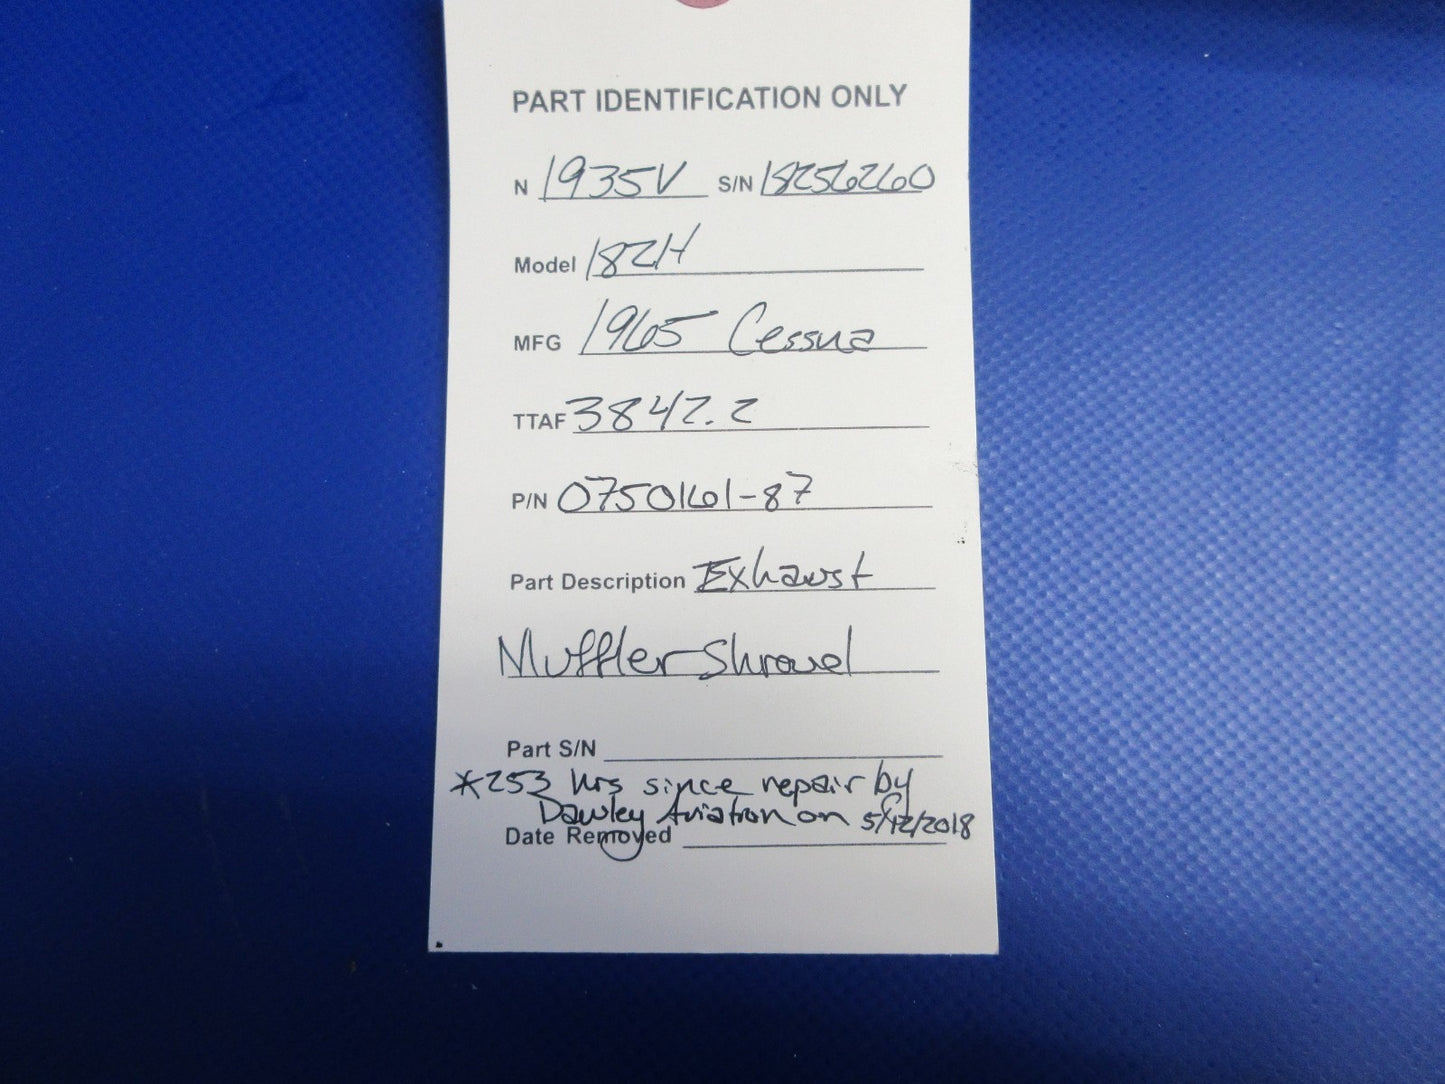 PART IDENTIFICATION ONLY
N 1935V S/N 18256260
Model 182H
MFG 1965 Cessna
TTAF 3842.2
P/N 0750161-87
Part Description Exhaust
Muffler Shroud
Part S/N
*253 hrs since repair by
Dawley Aviation on 5/12/2018
Date Removed